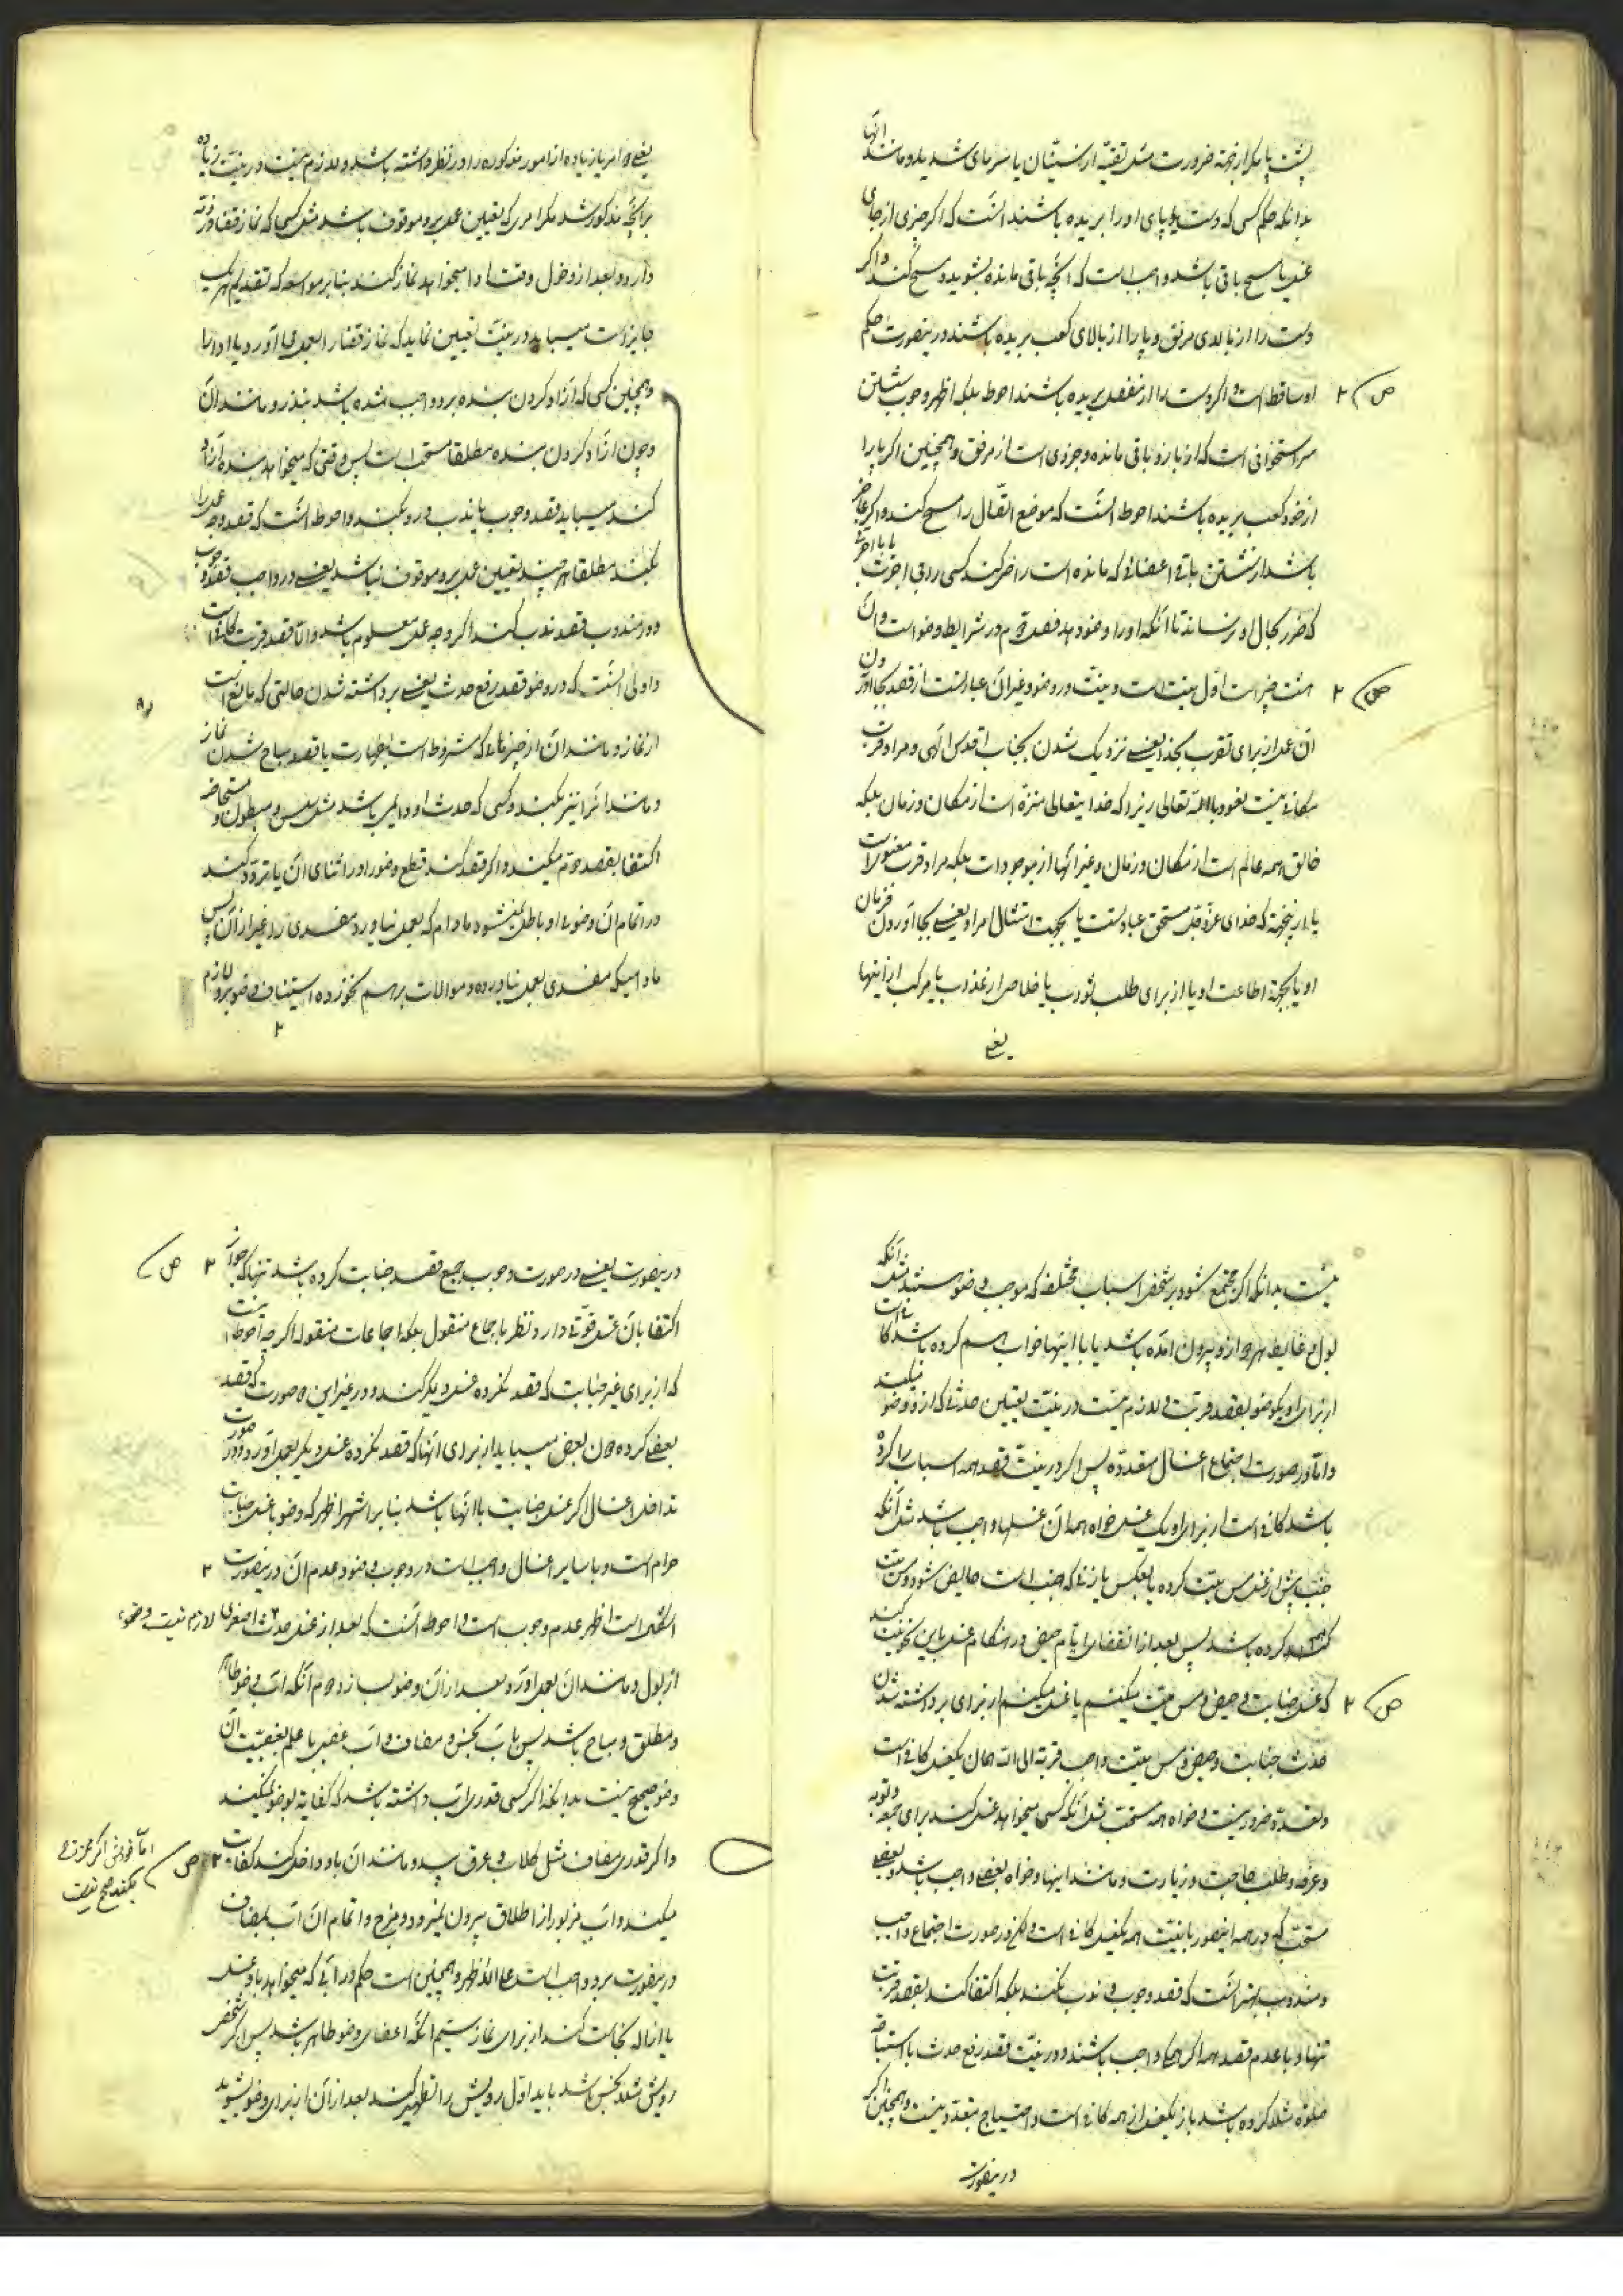 پشت پا مکر از جهة ضرورت مثل تقیّه از سنّیان یا سرمای شدید و مانند انها
بدانکه حکم کسی که دست یا پای او را بریده باشند انست که اکر چیزی از جای
غسل یا مسح باقی باشد واجب است که انچه باقی مانده بشوید و مسح کند و اکر
دست را از بالای مرفق و پا را از بالای کعب بریده باشند درینصورت حکم
او ساقط است و اکر دست را از مفصل بریده باشند احوط بلکه اظهر وجوب شستن
سر استخوانی است که از بازو باقی مانده و جزوی است از مرفق و همچنین اکر پا را
از خود کعب بریده باشند احوط انست که موضع اتّصال را مسح کند و اکر عاجز
باشد از شستن باقی اعضائی که مانده است راضی کند کسی را یا باجرتی
که ضرر بحال او نرساند تا انکه او را وضو دهد فصل دوم در شرایط وضو است و آن
هشت چیز است اوّل نیت است و نیت در وضو و غیر آن عبارتست از قصد بجا اوردن
ان عمل از برای تقرب بخدا یعنی نزدیک شدن بجناب اقدس الهی و مراد قرب
مکانی نیست نعوذ بالله تعالی زیرا که خدایتعالی منزّه است از مکان و زمان بلکه
خالق همه عالم است از مکان و زمان و غیر انها از موجودات بلکه مراد قرب معنوی است
یا از اینجهة که خدای عزّ و جل مستحق عبادتست یا بجهت امتثال امر او یعنی بجا آوردن فرمان
او یا بجهة اطاعت او یا از برای طلب ثواب یا خلاص از عذاب یا مرکب از اینها
یعنی
یعنی دو امر یا زیاده از امور مذکوره را در نظر داشته باشد و لازم نیست در نیّت زیاده
بر انچه مذکور شد مکر امری که تعیین عمل برو موقوف باشد مثل کسی که نماز قضا در ذمّه
دارد و بعد از دخول وقت ادا میخواهد نماز کند بنا بر مواسعه که تقدیم هر یک
جایز است میباید در نیّت تعیین نماید که نماز قضا را بعمل می آورد یا ادا را
و همچنین کسی که آزاد کردن بنده برو واجب شده باشد بنذر و مانند آن
و چون ازاد کردن بنده مطلقا مستحب است پس وقتی که میخواهد بنده آزاد
کند میباید قصد وجوب یا ندب درو بکند و احوط انست که قصد وجه عمل را
بکند مطلقا هر چند تعیین عمل برو موقوف نباشد یعنی در واجب قصد وجوب
و در مندوب قصد ندب کند اکر وجه عمل معلوم باشد و الّا قصد قربت کافی است
و اولی انست که در وضو قصد رفع حدث یعنی برداشته شدن حالتی که مانع است
از نماز و مانند آن از چیزهائی که مشروط است بطهارت یا قصد مباح شدن نماز
و مانند آنرا نیز بکند و کسی که حدث او دایمی باشد مثل سلس و مبطون و مستحاضه
اکتفا بقصد دوّم میکند و اکر قصد کند قطع وضو را در اثنای آن یا تردّد کند
در اتمام آن وضوء او باطل نمیشود مادام که بعمل نیاورد مفسدی را غیر از آن پس
مادامیکه مفسدی بعمل نیاورده و موالات برهم نخورده استیناف وضو برو لازم
نیست بدانکه اکر مجتمع شود بر شخص اسباب مختلفه که موجب وضو هستند مثل آنکه
بول و غایط هر دو ازو بیرون امده باشد یا با اینها خواب هم کرده باشد کافی است
از برای او یکوضو بقصد قربت و لازم نیست در نیّت تعیین حدثی که ازو وضو میکند
و امّا در صورت اجتماع اغسال متعدّده پس اکر در نیّت قصد همه اسباب را کرده
باشد کافی است از برای او یک غسل خواه همه آن غسلها واجب باشد مثل آنکه
جنب پیش از غسل مس میّت کرده یا بعکس یا زنی که جنب است حایض شود و مس میّت
کرده باشد پس بعد از انقضای ایّام حیض در هنکام غسل باین نحو نیت کند
که غسل جنابت و حیض و مس میّت میکنم یا غسل میکنم از برای برداشته شدن
حدث جنابت و حیض و مس میّت واجب قربة الی الله همان یکغسل کافی است
و تعدّد ضرور نیست و خواه همه مستحب مثل آنکه کسی میخواهد غسل کند برای جمعه و توبه
و عرفه و طلب حاجت و زیارت و مانند اینها و خواه بعضی واجب باشد و بعضی
مستحب که در همه اینصور با نیّت همه یکغسل کافی است و لکن در صورت اجتماع واجب
و مندوب بهتر انست که قصد وجوب و ندب نکند بلکه اکتفا کند بقصد قربت
تنها و با عدم قصد همه اکر همه واجب باشند و در نیّت قصد رفع حدث یا استباحه
صلوة مثلا کرده باشد باز یکغسل از همه کافی است و احتیاج بتعدّد نیست و همچنین اکر
درینصورت
درینصورت یعنی در صورت وجوب جمیع قصد جنابت کرده باشد تنها که جواز
اکتفا بان غسل قوّتی دارد نظر باجماع منقول بلکه اجماعات منقوله اکرچه احوط انست
که از برای غیر جنابت که قصد نکرده غسل دیکر کند و در غیر این دو صورت که قصد
بعضی کرده دون بعض میباید از برای انها که قصد نکرده غسل دیکر بعمل آورد و در صورت
تداخل اغسال اکر غسل جنابت با انها باشد بنا بر اشهر اظهر که وضو با غسل جنابت
حرام است و با سایر اغسال واجب است در وجوب وضو و عدم ان درینصورت ۲
اشکال است اظهر عدم وجوب است و احوط آنست که بعد از غسل حدث اصغری
لازم نیست وضوء
از بول و مانند آن بعمل آورد و بعد از آن وضو بسازد دوّم آنکه اب وضو طاهر
و مطلق و مباح باشد پس با آب نجس و مضاف و آب غصبی با علم بغصبیّت آن
وضو صحیح نیست بدانکه اکر کسی قدری آب داشته باشد که کفایة بوضو نمیکند
و اکر قدری مضاف مثل کلاب و عرق بید و مانند آن باو داخل کند کفایت
میکند و آب مزبور از اطلاق بیرون نمیرود و مزج و اتمام آن آب بمضاف
درینصورت برو واجب است علی الاظهر و همچنین است حکم در آبی که میخواهد باو غسل
یا ازاله نجاست کند از برای نماز سیّم انکه اعضای وضو طاهر باشد پس اکر شخص
رویش مثلا نجس باشد باید اوّل رویش را تطهیر کند بعد از آن از برای وضو بشوید